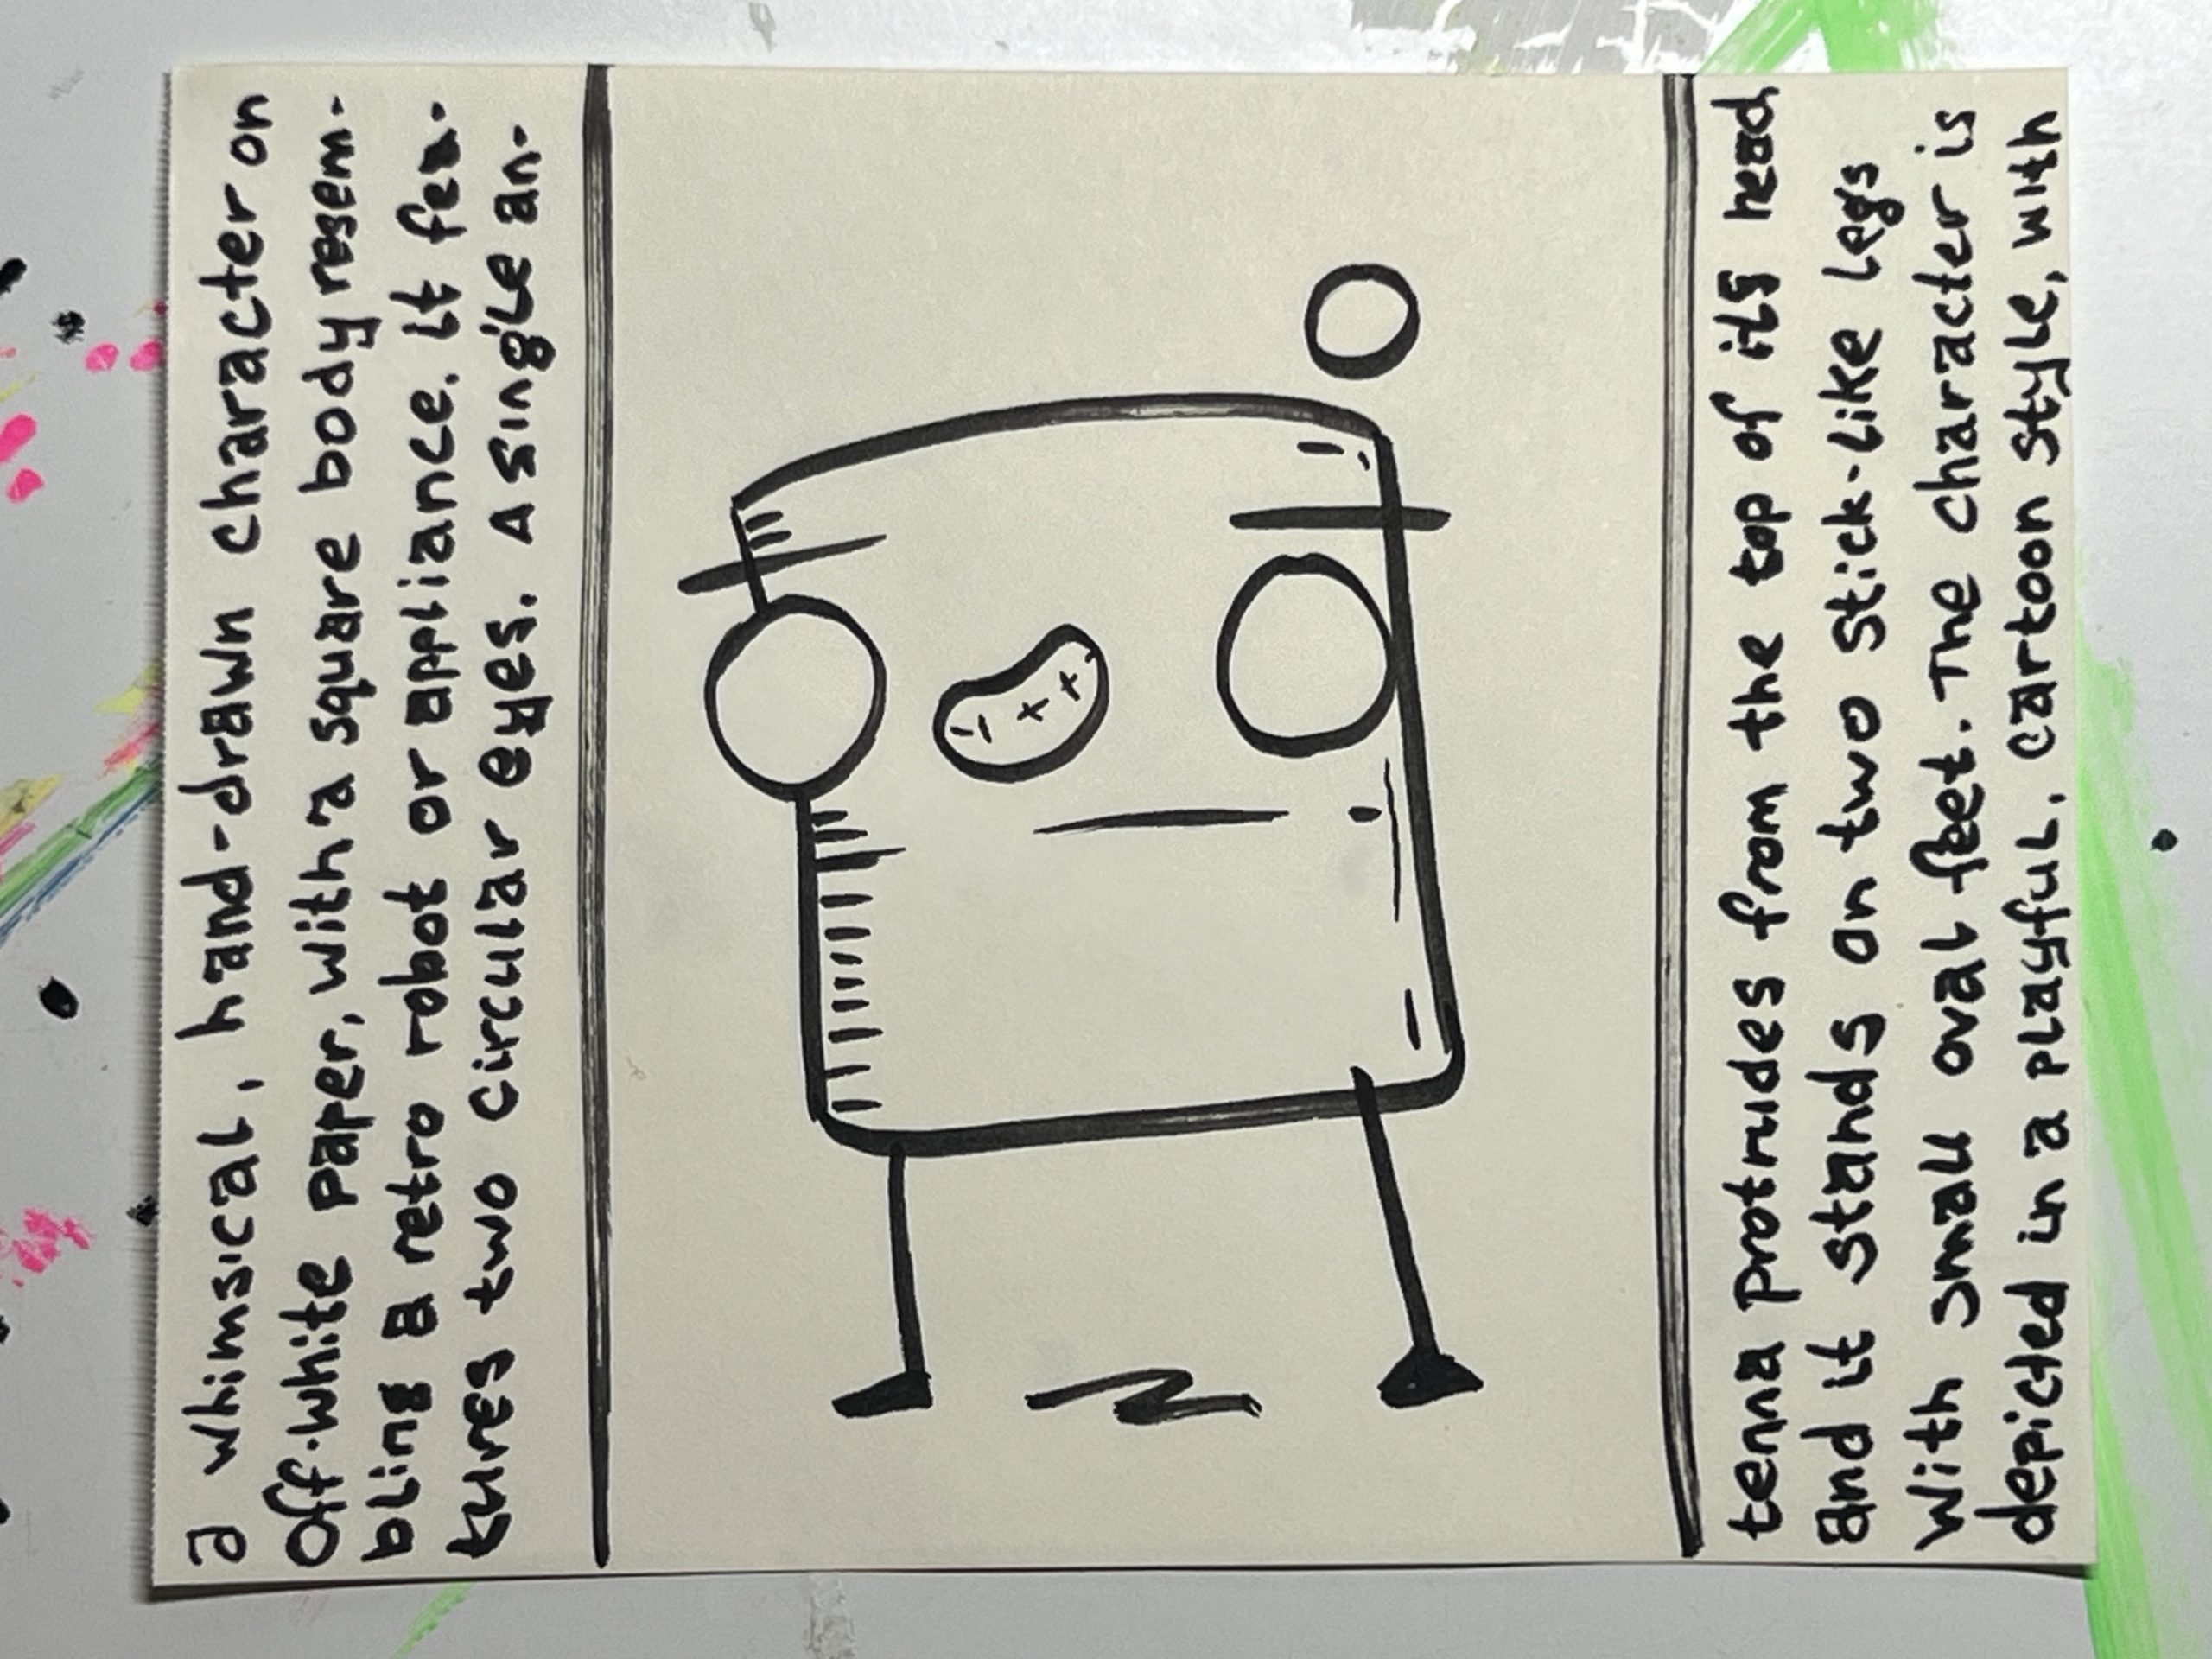 a whimsical, hand-drawn character on
off-white paper, with a square body resem-
bling a retro robot or appliance. it fea-
tures two circular eyes. A single an-
tenna protrudes from the top of its head
and it stands on two stick-like legs
with small oval feet. The character is
depicted in a playful, cartoon style, with